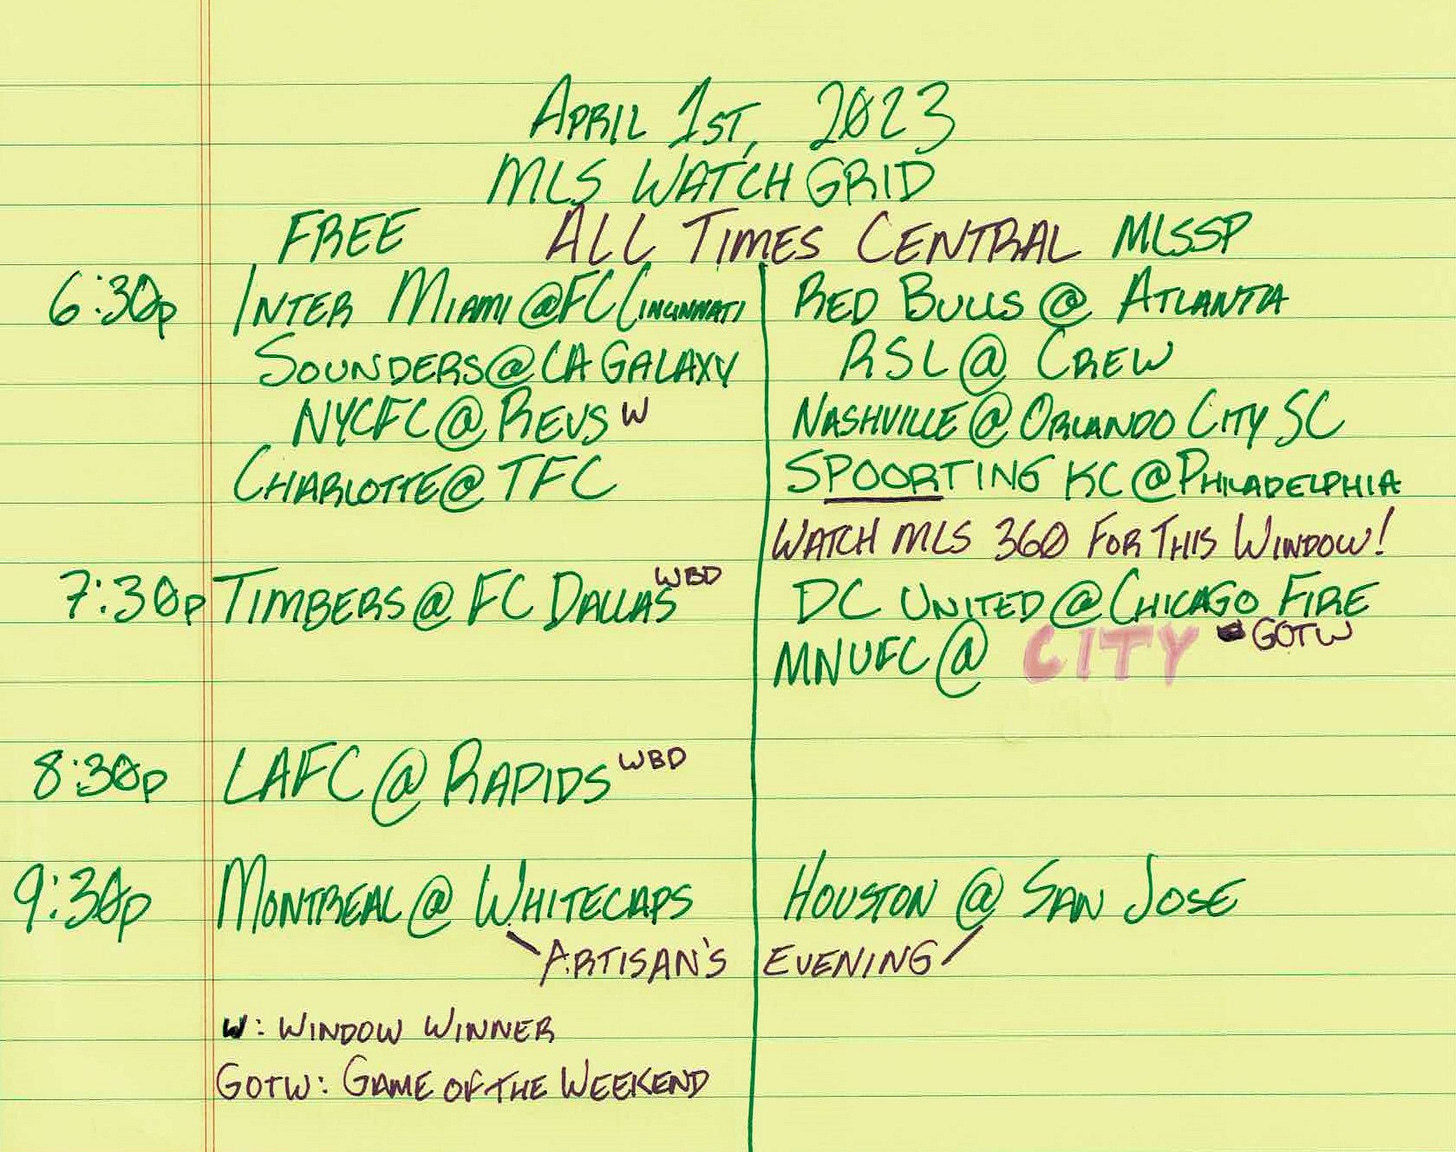 APRIL 1ST, 2023
MLS WATCH GRID
FREE ALL TIMES CENTRAL MLSSP
6:30p INTER MIAMI @ FC CINCINNATI RED BULLS @ ATLANTA
SOUNDERS @ LA GALAXY RSL @ CREW
NYCFC @ REVS W NASHVILLE @ ORLANDO CITY SC
CHARLOTTE @ TFC SPOORTING KC @ PHILADELPHIA
WATCH MLS 360 FOR THIS WINDOW!
7:30p TIMBERS @ FC DALLAS WBD DC UNITED @ CHICAGO FIRE
MNUFC @ CITY GOTW
8:30p LAFC @ RAPIDS WBD
9:30p MONTREAL @ WHITECAPS HOUSTON @ SAN JOSE
ARTISAN'S EVENING
W: WINDOW WINNER
GOTW: GAME OF THE WEEKEND